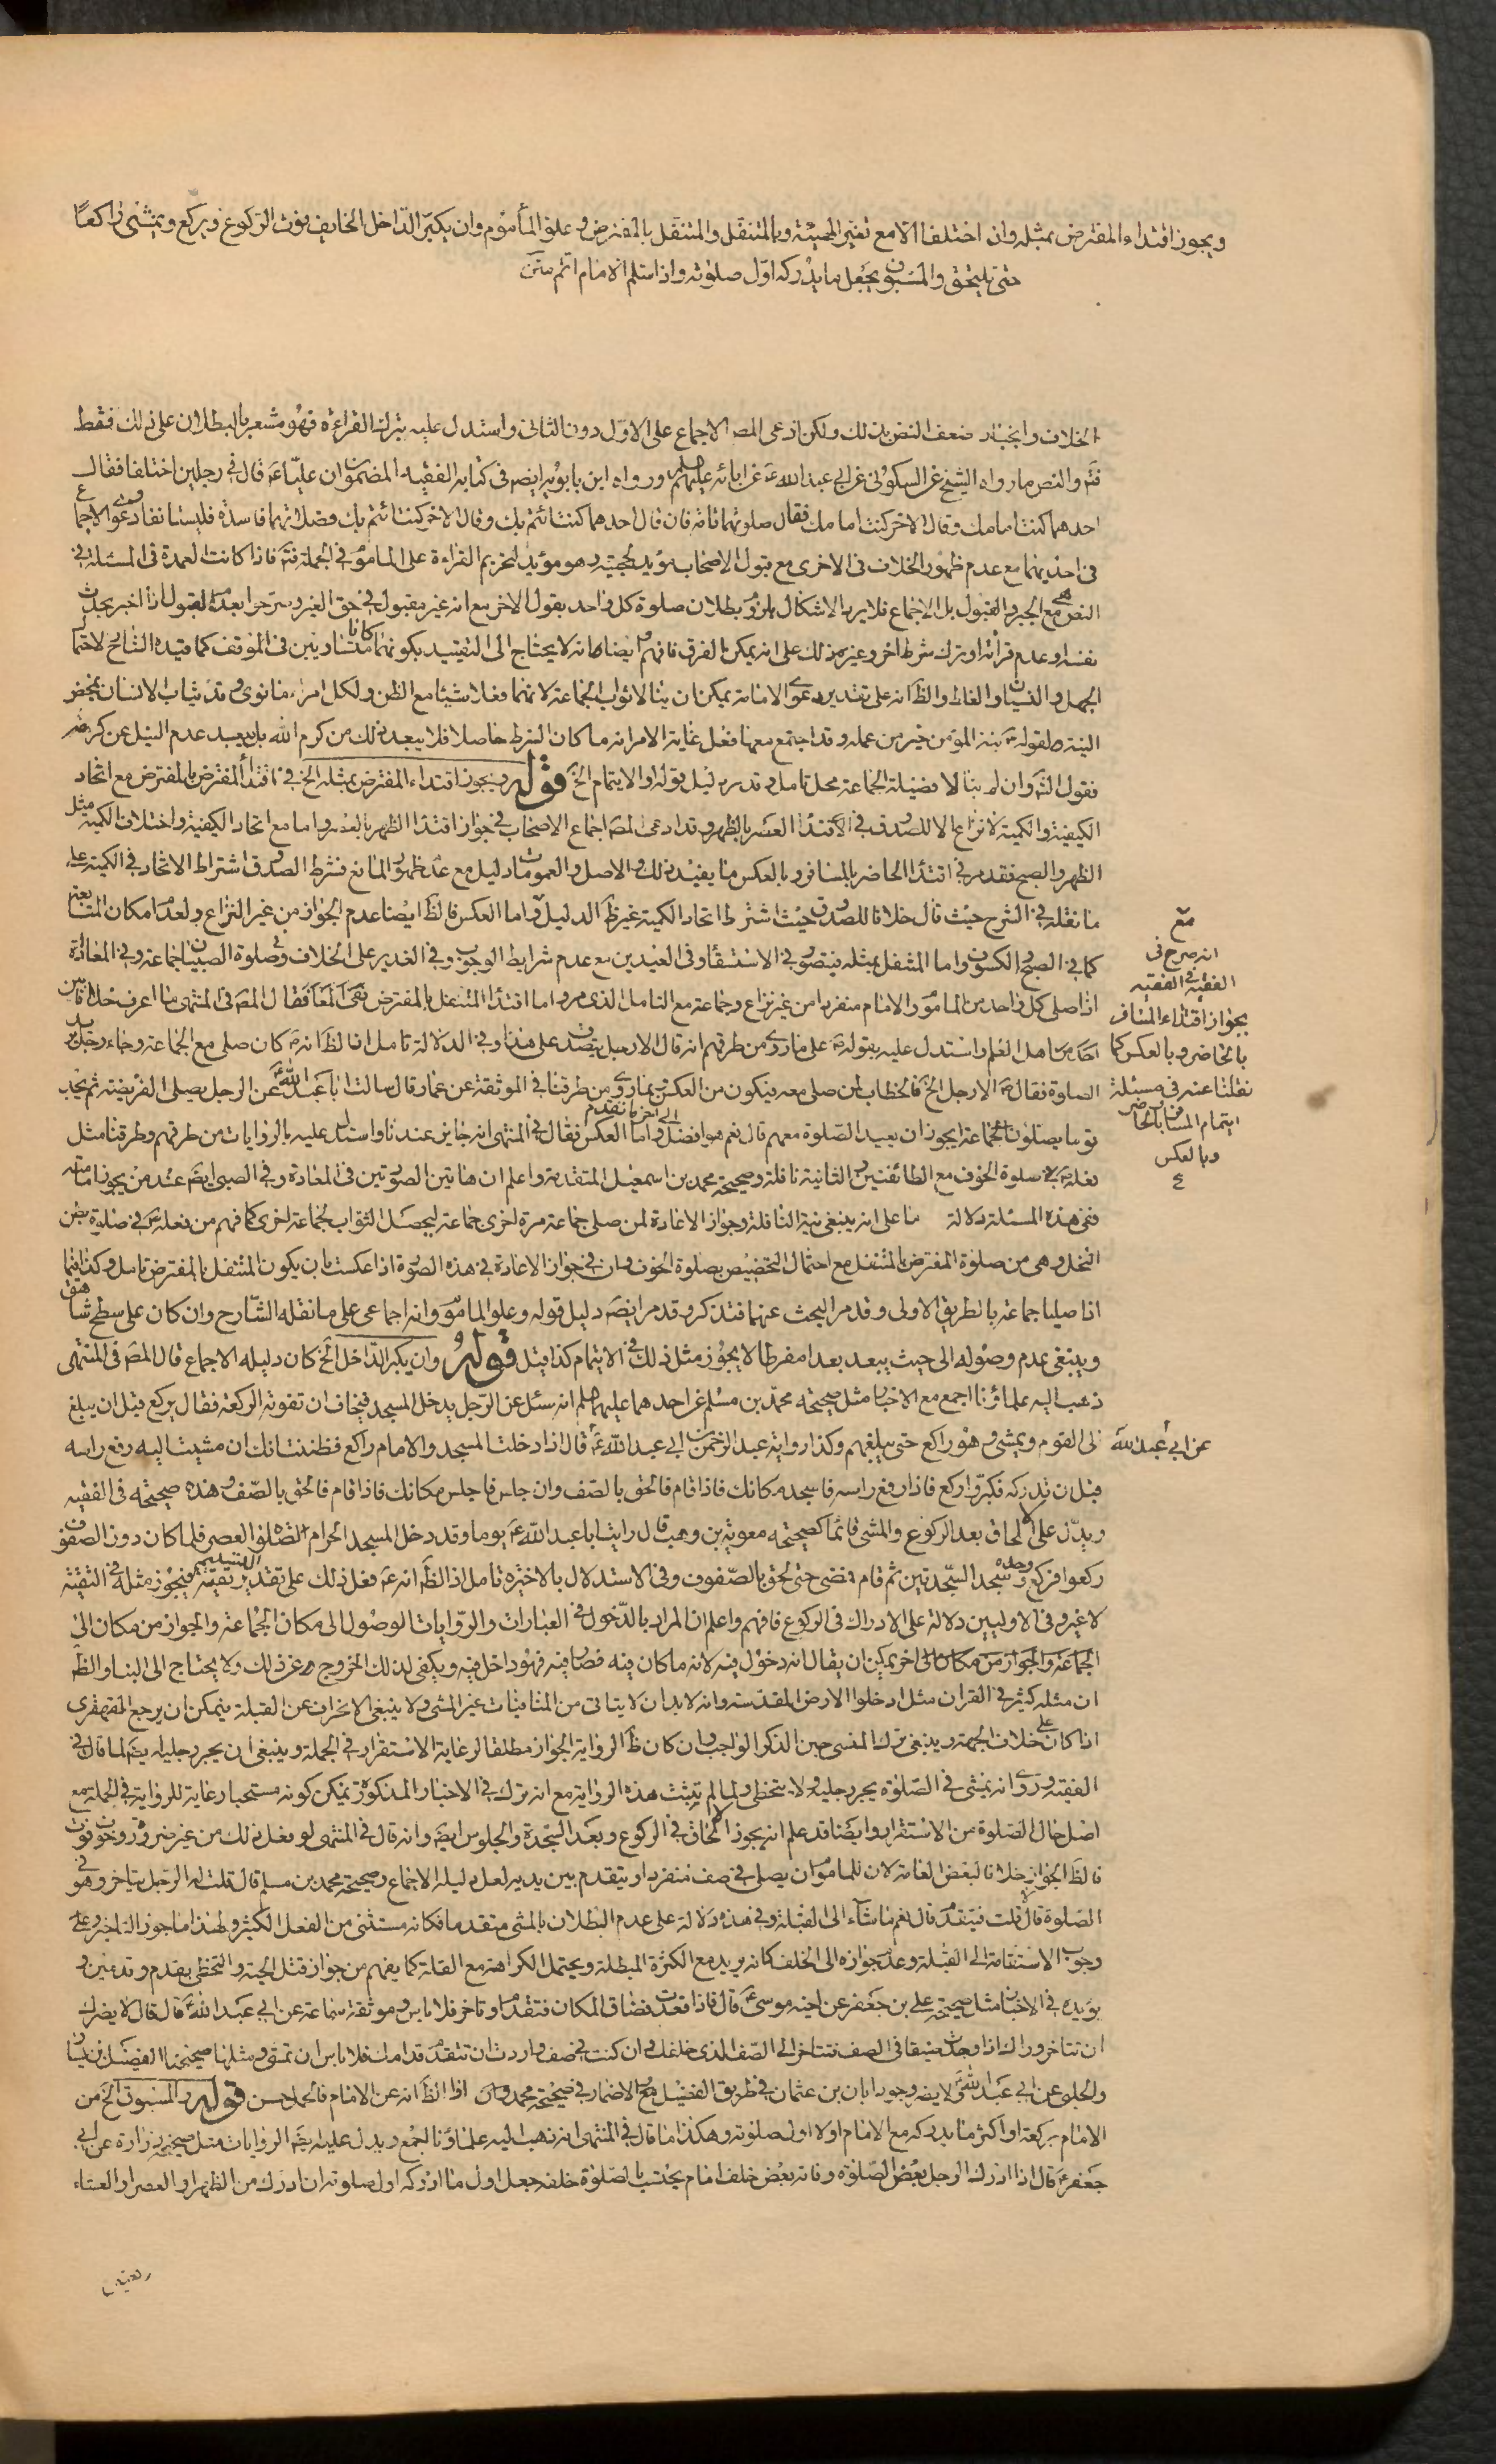 ويجوز اقتداء المفترض بمثله وان اختلفا الا مع تغير الهيئة وبالمتنفل والمتنفل بالمفترض وعلو المأموم وان يكبر الداخل الخايف فوت الركوع ويركع ويمشى راكعا
حتى يلتحق والمسبوق يجعل ما يدركه اول صلوته واذا سلم الامام اتم
الخلاف وانجبار ضعف النص بذلك ولكن ادعى المصـ الاجماع على الاول دون الثانى واستدل عليه بترك القراءة فهو مشعر بالبطلان على ذلك فقط
فتم والنص ما رواه الشيخ عن السكونى عن ابى عبد الله عن ابائه عليهم ورواه ابن بابويه ايضا فى كتابه الفقيه المضمون ان عليا قال فى رجلين اختلفا فقال
احدهما كنت امامك وقال الاخر كنت امامك فقال صلوتهما تامة فان قال احدهما كنت ائتم بك وقال الاخر كنت ائتم بك فصلوتهما فاسدة فليستانفا ودعوى الاجماع
فى احديهما مع عدم ظهور الخلاف فى الاخرى مع قبول الاصحاب يؤيد لحجيته وهو مؤيد لتحريم القراءة على الماموم فى الجملة فتم فاذا كانت العمدة فى المسئلة فى
النص مع الجبر والقبول بل الاجماع فلا يرد الاشكال بلزوم بطلان صلوة كل واحد بقول الاخر مع انه غير مقبول فى حق الغير وصرحوا بعدم القبول اذا اخبر بحدث
نفسه وعدم قرائه او ترك شرط اخر وغير ذلك على انه يمكن الفرق فافهم وايضا لا يحتاج الى التقييد بكونهما كانا متساويين فى الموقف كما قيده الشارح لاحتمال
الجهل والنسيان والغلط والظ انه على تقدير دعوى الامامة يمكن ان ينالا ثواب الجماعة لانهما فعلا شيئا مع الظن ولكل امرء ما نوى وقد يثاب الانسان بمحض
النية ولقوله نية المؤمن خير من عمله وقد اجتمع معها فعل غاية الامر انه ما كان الشرط حاصلا فلا يبعد ذلك من كرم الله بل يبعد عدم النيل عن كرمه
فقول الشـ وان لم ينالا فضيلة الجماعة محل تامل وقد مر دليل قوله او الايتمام الخ قوله ويجوز اقتداء المفترض بمثله الخ فى اقتداء المفترض بالمفترض مع اتحاد
الكيفية والكمية لا نزاع الا للصدوق فى اقتداء العصر بالظهر وقد ادعى المصـ اجماع الاصحاب فى جواز اقتداء الظهر بالعصر واما مع اتحاد الكيفية واختلاف الكمية مثل
الظهر والصبح فقد مر فى اقتداء الحاضر بالمسافر وبالعكس ما يفيد ذلك والاصل والعمومات دليل مع عدم ظهور المانع فشرط الصدوق اشتراط الاتحاد فى الكمية على
ما نقله فى الشرح حيث قال خلافا للصدوق حيث اشترط اتحاد الكمية غير ظ الدليل واما العكس فالظ ايضا عدم الجواز من غير النزاع ولعدم امكان المتابعة
كما فى الصبح والكسوف واما المتنفل بمثله فيتصور فى الاستسقاء وفى العيدين مع عدم شرايط الوجوب وفى الغدير على الخلاف وصلوة الصبيان جماعة وفى المعادة
اذا صلى كل واحد من المأموم والامام منفردا من غير نزاع وجماعة مع التامل الذى مر واما اقتداء المتنفل بالمفترض فقال المصـ فى المنتهى ما اعرف خلافا بين
احد من اهل العلم واستدل عليه بقوله على ما روى من طرقهم انه قال الا رجل يتصدق على هذا وفى الدلالة تامل اذ الظ انه كان صلى مع الجماعة وجاء رجل يريد
الصلوة فقال الا رجل الخ فالخطاب لمن صلى معه فيكون من العكس بما روى من طرقنا فى الموثقة عن عمار قال سالت ابا عبد الله عن الرجل يصلى الفريضة ثم يجد
قوما يصلون جماعة ايجوز ان يعيد الصلوة معهم قال نعم هو افضل الى اخر ما تقدم واما العكس فقال فى المنتهى انه جايز عندنا واستدل عليه بالروايات من طرقهم وطرقنا مثل
فعله فى صلوة الخوف مع الطائفتين والثانية نافلة وصحيحة محمد بن اسمعيل المتقدمة واعلم ان هاتين الصورتين فى المعادة وفى الصبى ايضا عند من يجوز امامته
ففى هذه المسئلة دلالة ما على انه ينبغى نية النافلة وجواز الاعادة لمن صلى جماعة مرة اخرى جماعة ليحصل الثواب لجماعة اخرى كما فهم من فعله فى صلوة بطن
النخل وهى من صلوة المفترض بالمتنفل مع احتمال التخصيص بصلوة الخوف وان فى جواز الاعادة فى هذه الصورة اذا عكست بان يكون المتنفل بالمفترض تامل وكذا فيما
اذا صليا جماعة بالطريق الاولى وقد مر البحث عنهما فتذكر وقد مر ايضا دليل قوله وعلو المأموم وانه اجماعى على ما نقله الشارح وان كان على سطح شاهق
وينبغى عدم وصوله الى حيث يبعد بعدا مفرطا لا يجوز مثل ذلك فى الايتمام كذا قيل قوله وان يكبر الداخل الخ كان دليله الاجماع قال المصـ فى المنتهى
ذهب اليه علماؤنا اجمع مع الاخبار مثل صحيحة محمد بن مسلم عن احدهما عليهما انه سئل عن الرجل يدخل المسجد فيخاف ان تفوته الركعة فقال يركع قبل ان يبلغ
الى القوم ويمشى وهو راكع حتى يبلغهم وكذا رواية عبد الرحمن بن ابى عبد الله قال اذا دخلت المسجد والامام راكع فظننت انك ان مشيت اليه رفع راسه
قبل ان تدركه فكبر واركع فاذا رفع راسه فاسجد مكانك فاذا قام فالحق بالصف وان جلس فاجلس مكانك فاذا قام فالحق بالصف وهذه صحيحة فى الفقيه
ويدل على الالحاق بعد الركوع والمشى قائما كصحيحة معوية بن وهب قال رايت ابا عبد الله يوما وقد دخل المسجد الحرام لصلوة العصر فلما كان دون الصفوف
ركعوا فركع وحده وسجد السجدتين ثم قام فمضى حتى لحق بالصفوف وفى الاستدلال بالاخيرة تامل اذ الظ انه فعل ذلك على تقدير التسليم تقية فيجوز مثله فى التقية
لا غير وفى الاوليين دلالة على الادراك فى الركوع فافهم واعلم ان المراد بالدخول فى العبارات والروايات الوصول الى مكان الجماعة والجواز من مكان الى
الجماعة والجواز من مكان الى اخر يمكن ان يقال انه دخول فيه لانه ما كان فيه فصار فيه فهو داخل فيه ويكفى لذلك الخروج من غير ذلك ولا يحتاج الى البناء والظ
ان مثله كثير فى القران مثل ادخلوا الارض المقدسة وانه لا بد ان لا يتاتى من المنافيات غير المشى ولا ينبغى الانحراف عن القبلة فيمكن ان يرجع القهقرى
اذا كان على خلاف الجهة وينبغى ترك المشى حين الذكر الواجب وان كان ظ الرواية الجواز مطلقا لرعاية الاستقرار فى الجملة وينبغى ان يجر رجليه ايضا لما قال فى
الفقيه وروى انه يمشى فى الصلوة يجر رجليه ولا يتخطى ولما لم يثبت هذه الرواية مع انه ترك فى الاخبار المذكورة يمكن كونه مستحبا رعاية للرواية فى الجملة مع
اصل حال الصلوة من الاستقرار وايضا قد علم انه يجوز الالحاق فى الركوع وبعد السجدة والجلوس ايضا وانه قال فى المنتهى لو فعل ذلك من غير ضرورة وخوف فوت
فالظ الجواز خلافا لبعض العامة لان للماموم ان يصلى فى صف منفردا ويتقدم بين يديه لعل دليله الاجماع وصحيحة محمد بن مسلم قال قلت له الرجل يتاخر وهو فى
الصلوة قال لا قلت فيتقدم قال نعم ما شاء الى القبلة وفى هذه دلالة على عدم البطلان بالمشى متقدما فكانه مستثنى من الفعل الكثير ولهذا ما جوز التاخير وعلى
وجوب الاستقامة الى القبلة وعدم جوازه الى الخلف كانه يريد مع الكثرة المبطلة ويحتمل الكراهة مع القلة كما يفهم من جواز قتل الحية والتخطى بقدم وقدمين و
يؤيده فى الاخبار مثل صحيحة على بن جعفر عن اخيه موسى قال فاذا قعدت فضاق المكان فتقدم او تاخر فلا باس وموثقة سماعة عن ابى عبد الله قال قال لا يضرك
ان تتاخر وراءك اذا وجدت ضيقا فى الصف فتتاخر الى الصف الذى خلفك وان كنت فى صف واردت ان تتقدم قدامك فلا باس ان تمشى ومثلها صحيحتا الفضيل بن يسار
والحلبى عن ابى عبد الله ولا يضر وجود ابان بن عثمان فى طريق الفضيل مع الاضمار فى صحيحة محمد اذ الظ انه عن الامام فالحمل حسن قوله والمسبوق الخ من
الامام بركعة او اكثر ما يدركه مع الامام اولا اول صلوته وهكذا ما قال فى المنتهى انه ذهب اليه علماؤنا اجمع ويدل عليه ايضا الروايات مثل صحيحة زرارة عن ابى
جعفر قال اذا ادرك الرجل بعض الصلوة وفاته بعض خلف امام يحتسب بالصلوة خلفه جعل اول ما ادركه اول صلوته ان ادرك من الظهر او العصر او العشاء
مع
انه صرح فى
الفقيه فى الفقيه
بجواز اقتداء المسافر
بالحاضر وبالعكس كما
نقلنا عنه فى مسئلة
ايتمام المسافر بالحاضر
وبالعكس
ع
عن ابى عبد الله
ركعتين